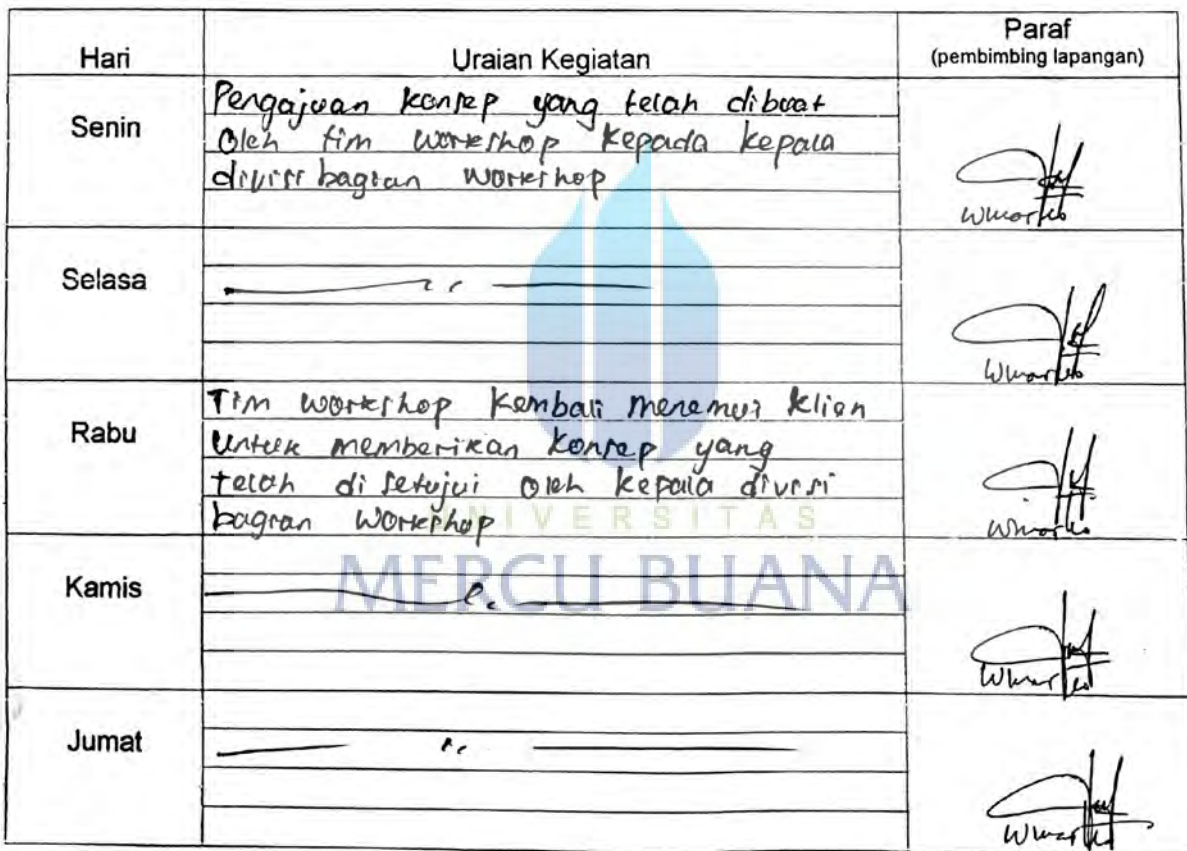 Hari Uraian Kegiatan Paraf
(pembimbing lapangan)
Senin
Pengajuan konsep yang telah dibuat
oleh tim workshop kepada kepala
divisi bagian workshop
Selasa
Rabu
Tim workshop kembali menemui klien
untuk memberikan konsep yang
telah di setujui oleh kepala divisi
bagian workshop
UNIVERSITAS
MERCU BUANA
Kamis
Jumat